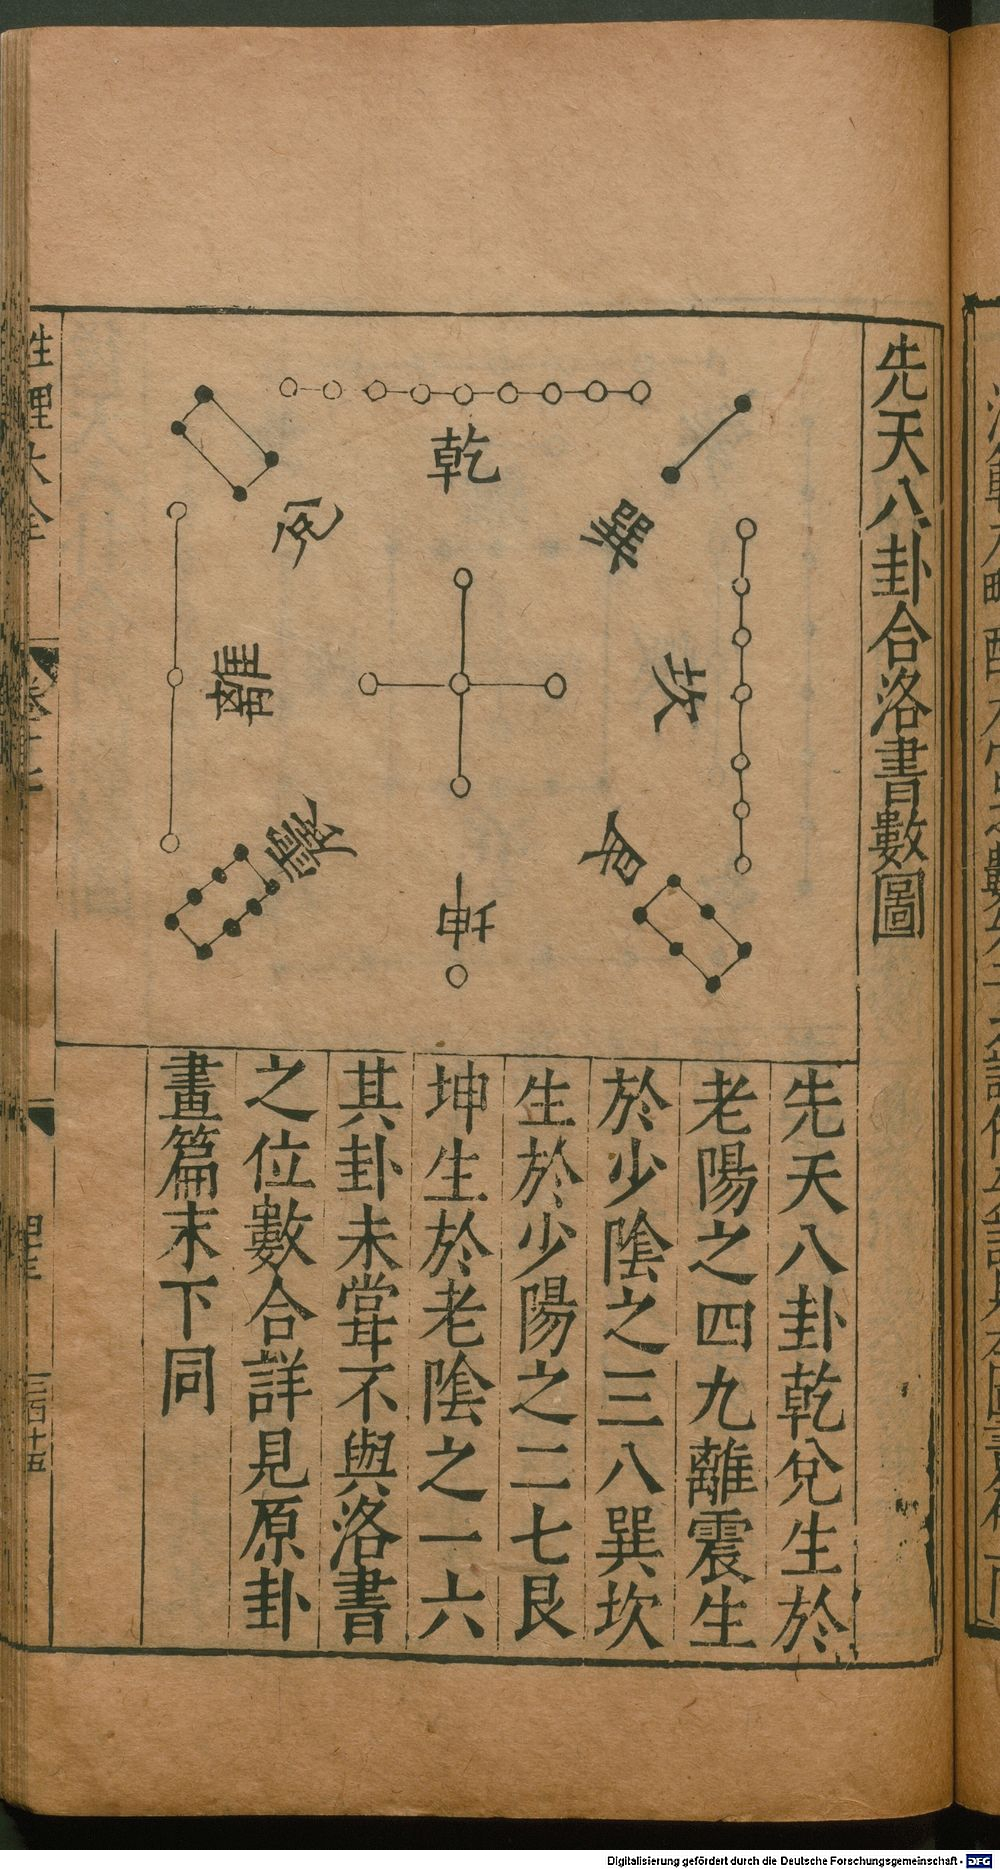 先天八卦合洛書數圖
乾
兌
離
震
巽
坎
艮
坤
先天八卦乾兌生於
老陽之四九離震生
於少陰之三八巽坎
生於少陽之二七艮
坤生於老陰之一六
其卦未甞不與洛書
之位數合詳見原卦
畫篇末下同
性理大全
Digitalisierung gefördert durch die Deutsche Forschungsgemeinschaft - DFG